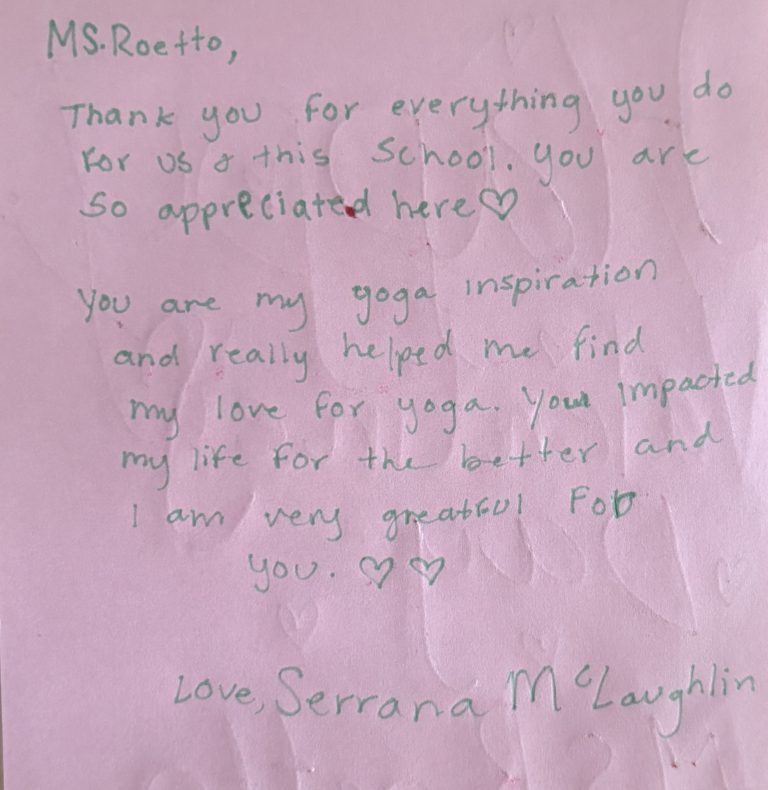 MS. Roetto,
Thank you for everything you do
for us & this School. You are
so appreciated here♡
You are my yoga inspiration
and really helped me find
my love for yoga. You impacted
my life for the better and
I am very greatful for
you. ♡ ♡
Love, Serrana McLaughlin